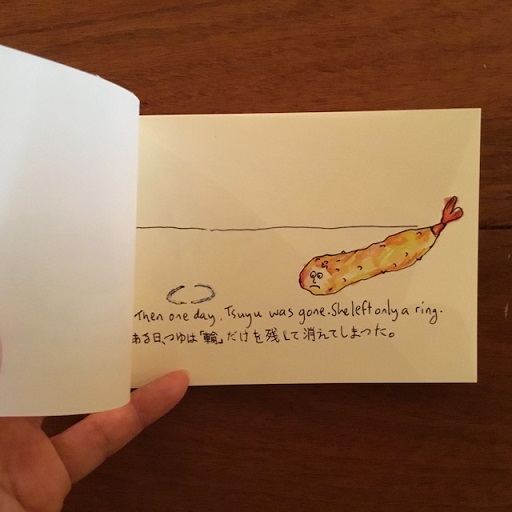 Then one day, Tsuyu was gone. She left only a ring.
ある日、つゆは「輪」だけを残して消えてしまった。